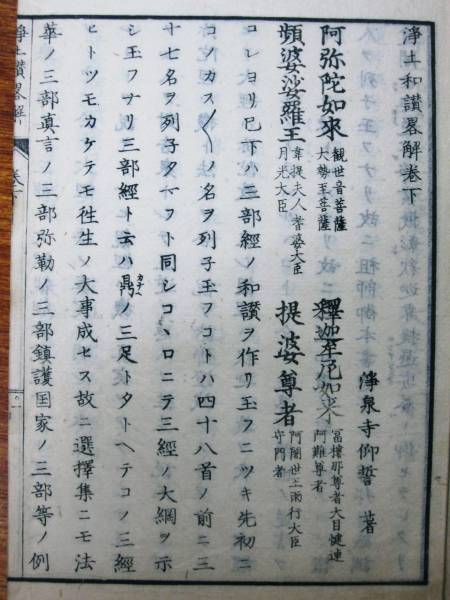 淨土和讃畧解巻下
淨泉寺仰誓 著
阿弥陀如來 観世音菩薩 大勢至菩薩 釋迦牟尼如来 冨樓那尊者大目犍連 阿難尊者
頻婆娑羅王 韋提夫人耆婆大臣 月光大臣 提婆尊者 阿闍世王雨行大臣 守門者
コレヨリ已下ハ三部經ノ和讃ヲ作リ玉フニツキ先初ニ
コノカス〱ノ名ヲ列子玉フコトハ四十八首ノ前ニ三
十七名ヲ列子タマフト同シコヽロニテ三經ノ大綱ヲ示
シ玉フナリ三部經ト云ハ鼎カナヘノ三足トタトヘテコノ三經
ヒトツモカケテモ徃生ノ大事成セス故ニ選擇集ニモ法
華ノ三部真言ノ三部弥勒ノ三部鎮護国家ノ三部等ノ例
淨土讃畧解
巻下